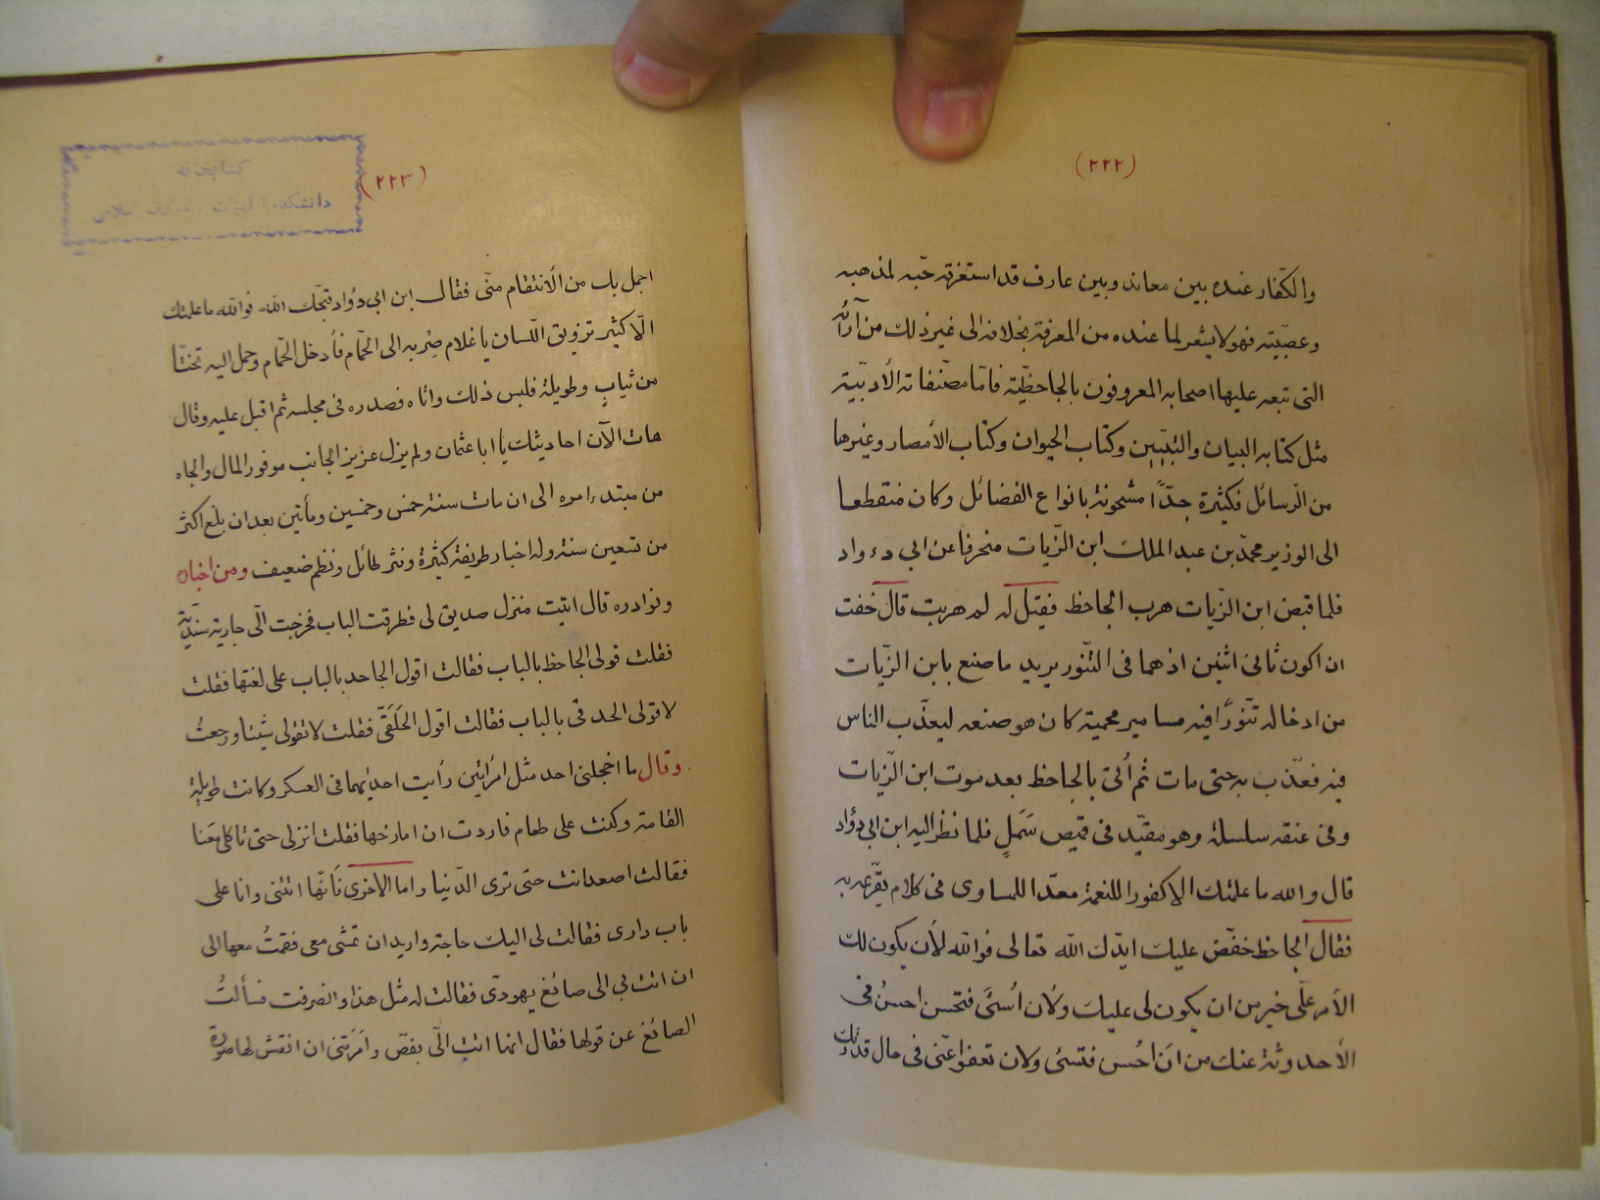 (٢٢٢)
والكفار عنده بين معاند وبين عارف قد استغرقه حبّه لمذهبه
وعصبيّته فهو لا يشعر لما عنده من المعرفة بخلافه الى غير ذلك من آرائه
التى تبعه عليها اصحابه المعروفون بالجاحظيّة فامّا مصنّفاته الأدبيّة
مثل كتابه البيان والتبيين وكتاب الحيوان وكتاب الأمصار وغيرها
من الرّسائل فكثيرة جدّاً مشحونة بانواع الفضائل وكان منقطعا
الى الوزير محمّد بن عبد الملك ابن الزّيات منحرفا عن ابي دءواد
فلما قبض ابن الزّيات هرب الجاحظ فقيل له لم هربت قال خفت
ان اكون ثانى اثنين اذهما فى التنّور يريد ما صنع بابن الزّيات
من ادخاله تنّورًا فيه مسامير محمية كان هو صنعه ليعذّب الناس
فيه فعذّب به حتى مات ثم أُتى بالجاحظ بعد موت ابن الزّيات
وفى عنقه سلسلة وهو مقيّد فى قميص سَمَلٍ فلما نظر اليه ابن ابى دؤاد
قال والله ما علمتك الا كفورا للنعمة معدّدا للمساوى فى كلام يقرّعه به
فقال الجاحظ خفّض عليك ايدّك الله تعالى فوالله لأن يكون لك
الأمر علّى خير من ان يكون لى عليك ولأن اُسئَ فتحسن احسنُ فى
الأحدوثة عنك من اَن اُحسن فتسئ ولان تعفو اعنّى فى حال قدرتك
(٢٢٣)
كتابخانه
دانشكده الهيات و معارف اسلامى
اجمل بك من الأنتقام منّى فقال ابن ابى دؤاد قبّحك الله فوالله ما علمتك
الّا كثير تزويق اللّسان يا غلام صِرْ به الى الحمّام فأدخل الحمّام وحمل اليه تختًا
من ثيابٍ وطويلة فلبس ذلك واتاه فصدره فى مجلسه ثم اقبل عليه وقال
هات الآن احاديثك يا ابا عثمان ولم يزل عزيز الجانب موفور المال والجاه
من مبتدء امره الى ان مات سنة خمس وخمسين ومأتين بعد ان بلغ اكثر
من تسعين سنة وله اخبار طريفة كثيرة ونثر طائل ونظم ضعيف ومن اخباره
ونوادره قال اتيت منزل صديق لى فطرقت الباب فخرجت الّى جارية سنديّة
فقلت قولى الجاحظ بالباب فقالت اقول الجاحد بالباب على لغتها فقلت
لا قولى الحدقى بالباب فقالت اقول الحَلَقىّ فقلت لا تقولى شيئا ورجعتُ
وقال ما اخجلنى احد مثل امرأتين رأيت احديهما فى العسكر وكانت طويلة
القامة وكنت على طعام فاردت ان امازحها فقلت انزلى حتى تاكلى معنا
فقالت اصعد انت حتى ترى الدّنيا واما الاخرى فانّها اتتنى وانا على
باب دارى فقالت لى اليك حاجة واريد ان تمشى معى فقمتُ معها الى
ان اتت بى الى صائغ يهودىّ فقالت له مثل هذا وانصرفت فسألتُ
الصائغ عن قولها فقال انها اتت الّى بفصّ وامَرَتنى ان انقش لها صورة